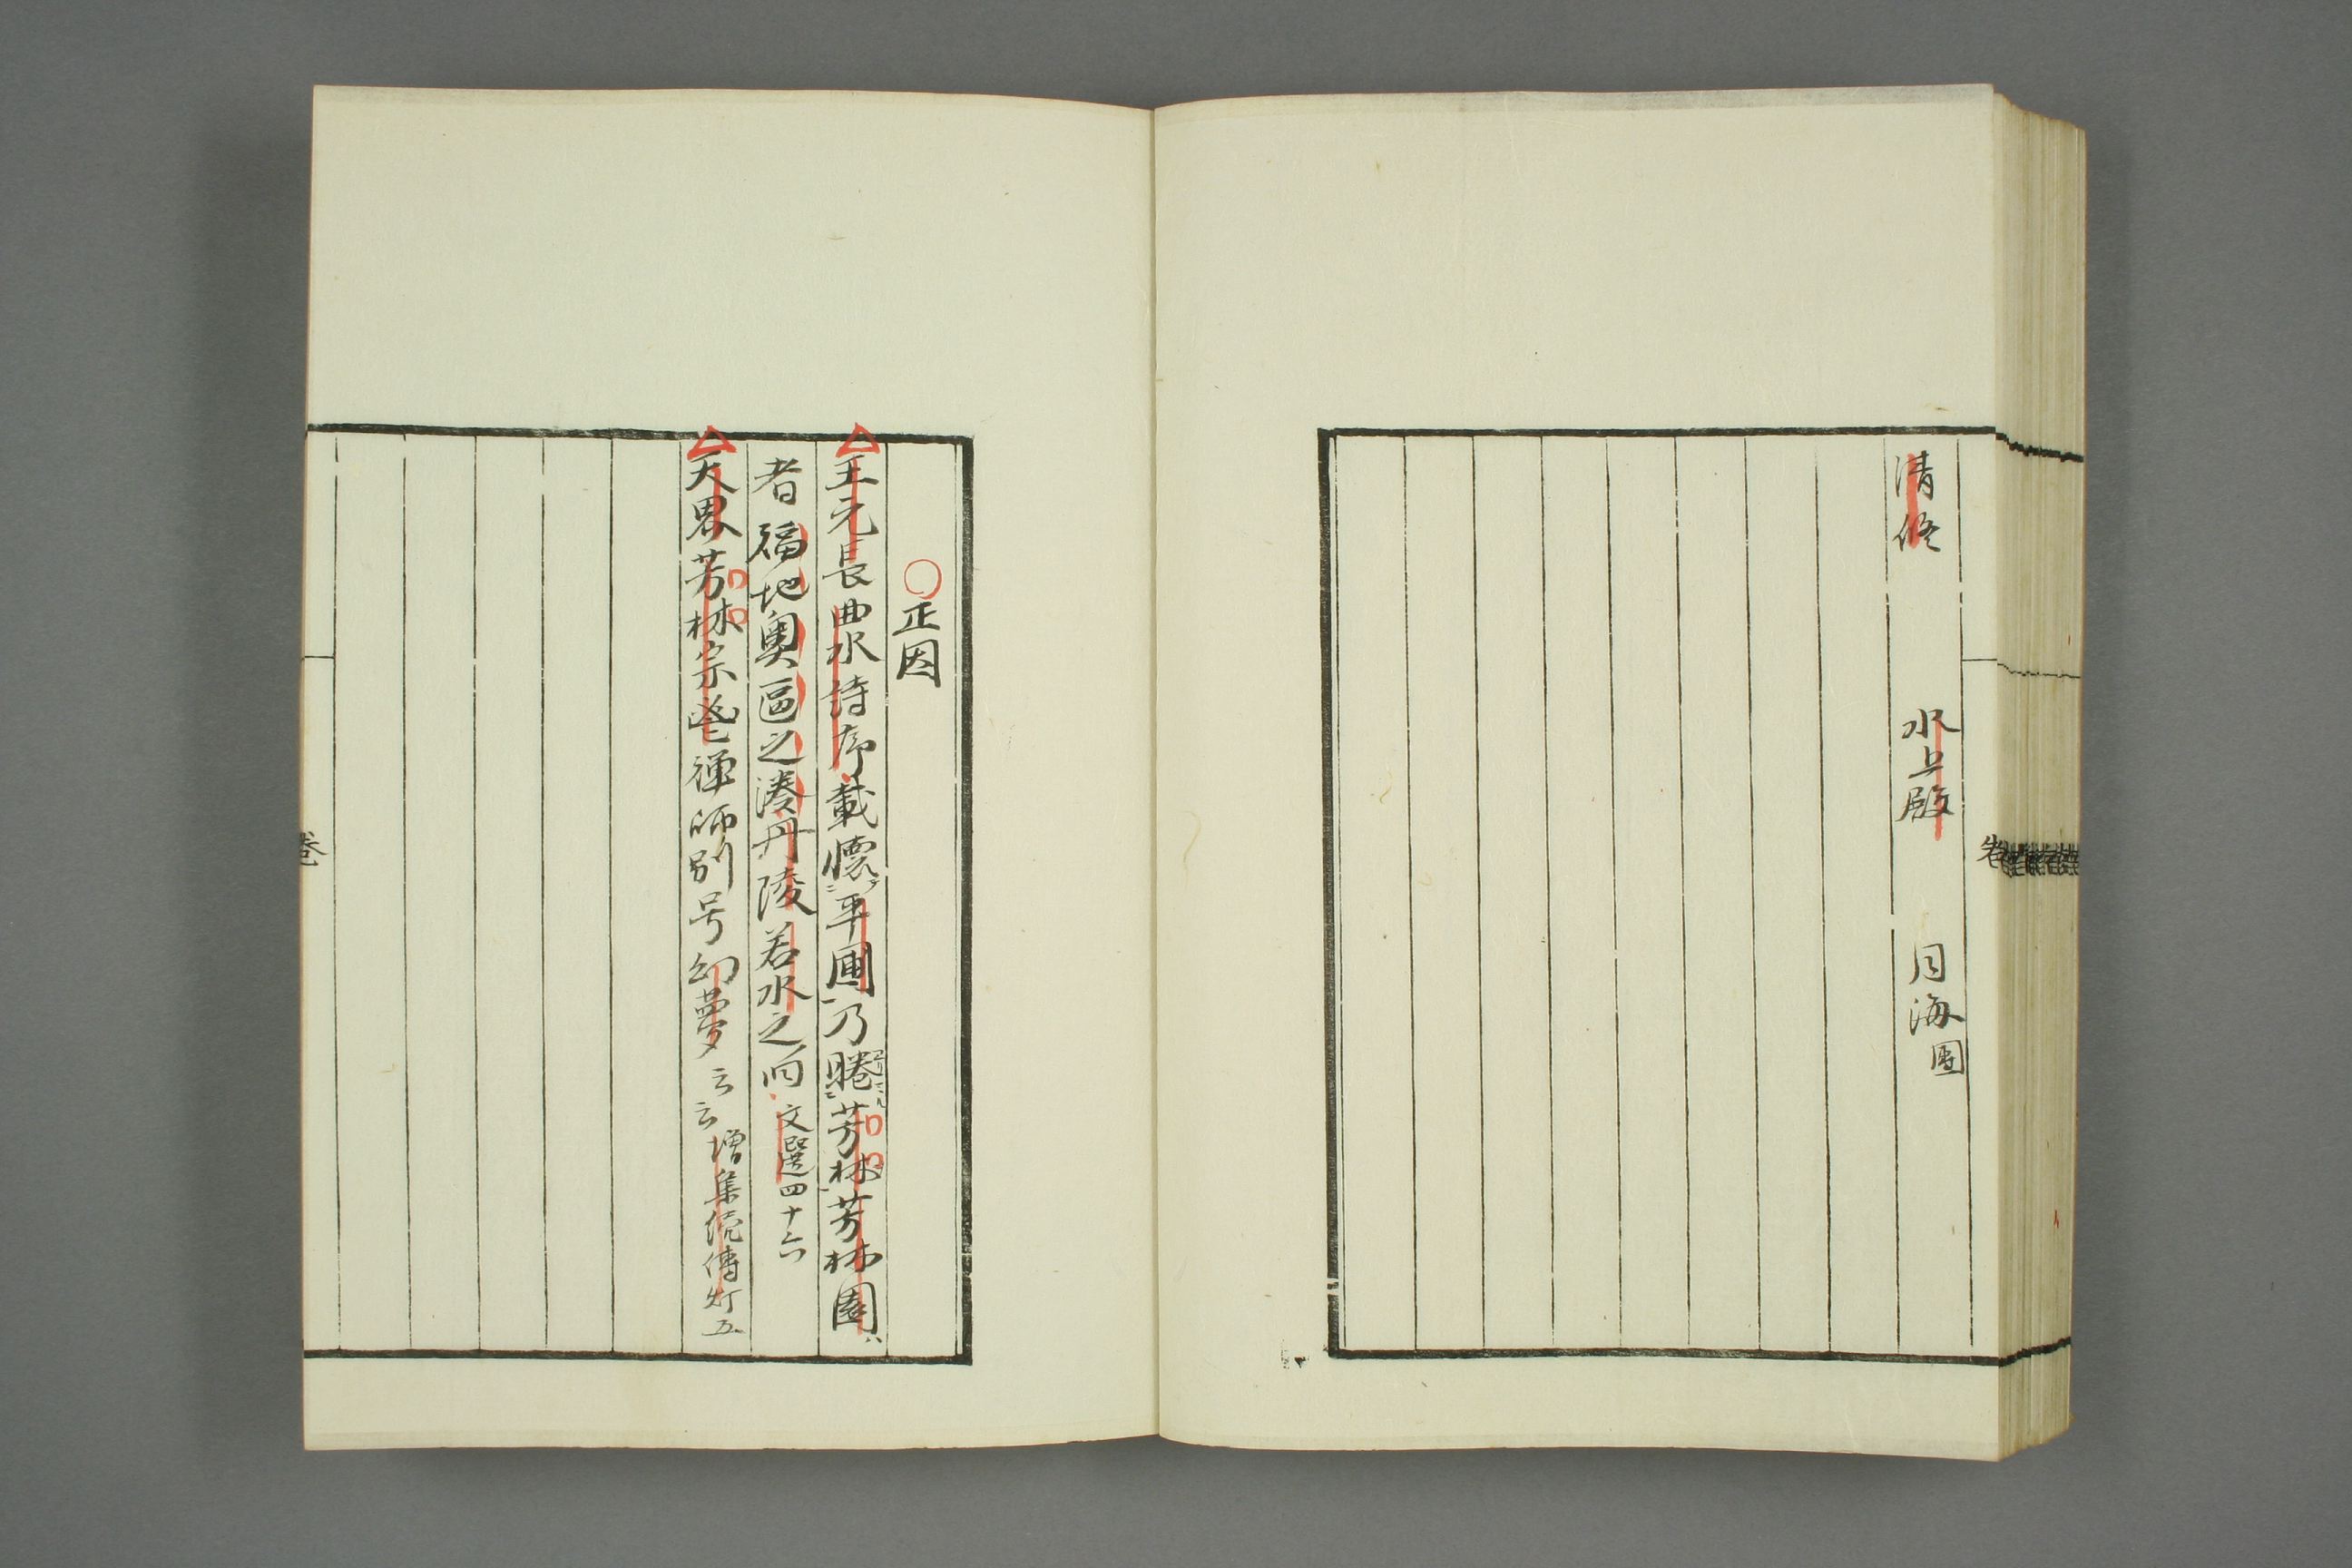 清修 水上殿 月海圖
卷
正因
王元長曲水詩序載懷平圃乃睠芳林芳林園
者福地奧區之湊丹陵若水之旧文選四十六
天界芳林宗鬯禅师別号幻夢云云增集续傳灯五
卷